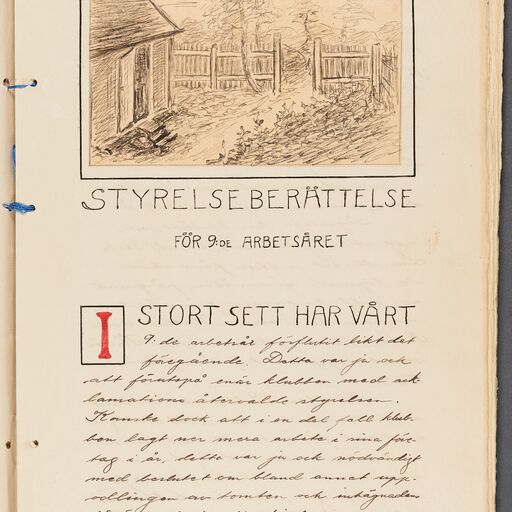 STYRELSEBERÄTTELSE
FÖR 9:DE ARBETSÅRET
I STORT SETT HAR VÅRT
9.de arbetsår förflutit likt det
föregående. Detta var ju ock
att förutspå enär klubben med ack-
lamations återvalde styrelsen.
Kanske dock att i en del fall klub-
ben lagt ner mera arbete i sina före-
tag i år, detta var ju ock nödvändigt
med beslutet om bland annat upp-
odlingen av tomten och intägnaden